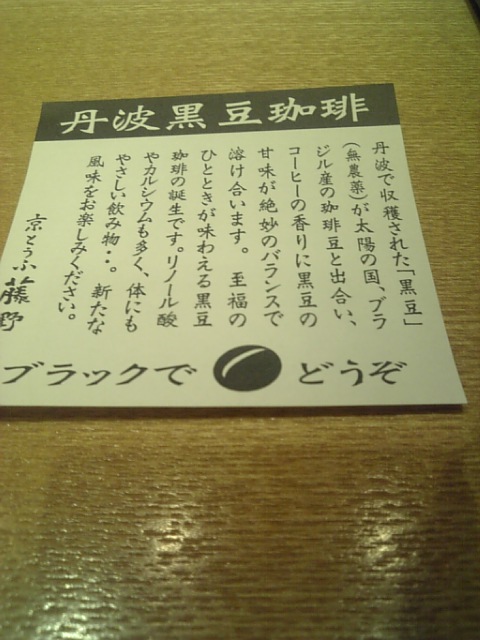 丹波黒豆珈琲
丹波で収穫された「黒豆」
(無農薬)が太陽の国、ブラ
ジル産の珈琲豆と出合い、
コーヒーの香りに黒豆の
甘味が絶妙のバランスで
溶け合います。 至福の
ひとときが味わえる黒豆
珈琲の誕生です。リノール酸
やカルシウムも多く、体にも
やさしい飲み物・・。 新たな
風味をお楽しみください。
京とうふ藤野
ブラックで どうぞ